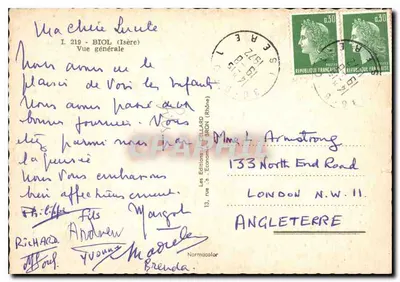 Ma chère Lucette
I. 219 - BIOL (Isère)
Vue générale
Nous avons eu le
plaisir de voir les enfants
Nous avons passé de
bonnes journées. Vous
étiez parmi nous par
la pensée
Nous vous embrassons
bien affectueusement
Philippe
Fifs
Margot
RICHARD
Andrew
Yvonne
Brenda
Les Editions
BRON (Rhône)
Normacolor
0,30
0,30
REPUBLIQUE FRANÇAISE
REPUBLIQUE FRANÇAISE
ISERE
1972
Armstrong
133 North End Road
LONDON N.W. 11
ANGLETERRE